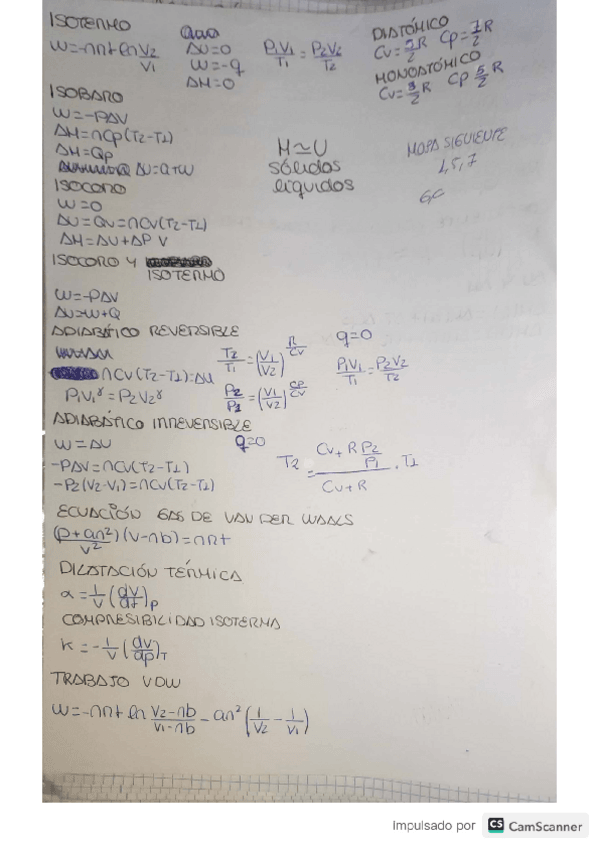 ISOTERMO
W=-nRt ln V2/V1
ΔU=0
W=-q
ΔH=0
P1V1/T1 = P2V2/T2
DIATÓMICO
Cv= R Cp= 7/2 R
MONOATÓMICO
Cv= 3/2 R Cp 5/2 R
ISOBARO
W=-PΔV
ΔH=nCp(T2-T1)
ΔH=Qp
ΔU=Q+W
H≃U
sólidos
líquidos
1,5,7
ISOCORO
W=0
ΔU=Qv=nCv(T2-T1)
ΔH=ΔU+ΔP V
ISOCORO Y
ISOTERMO
W=-PΔV
ΔU=W+Q
ADIABÁTICO REVERSIBLE
q=0
nCv(T2-T1)=ΔU
P1V1^γ=P2V2^γ
T2/T1=(V1/V2)^R/Cv
P2/P1=(V1/V2)^Cp/Cv
P1V1/T1=P2V2/T2
ADIABÁTICO IRREVERSIBLE
W=ΔU q=0
-PΔV=nCv(T2-T1)
-P2(V2-V1)=nCv(T2-T1)
T2 = (Cv+R P2/P1)/(Cv+R) . T1
ECUACIÓN GAS DE VAN DER WAALS
(P+an²/V²)(V-nb)=nRt
DILATACIÓN TÉRMICA
α=1/V (dV/dt)P
COMPRESIBILIDAD ISOTERMA
K=-1/V (dV/dp)T
TRABAJO VDW
W=-nRt ln V2-nb/V1-nb - an²(1/V2 - 1/V1)
Impulsado por CS CamScanner